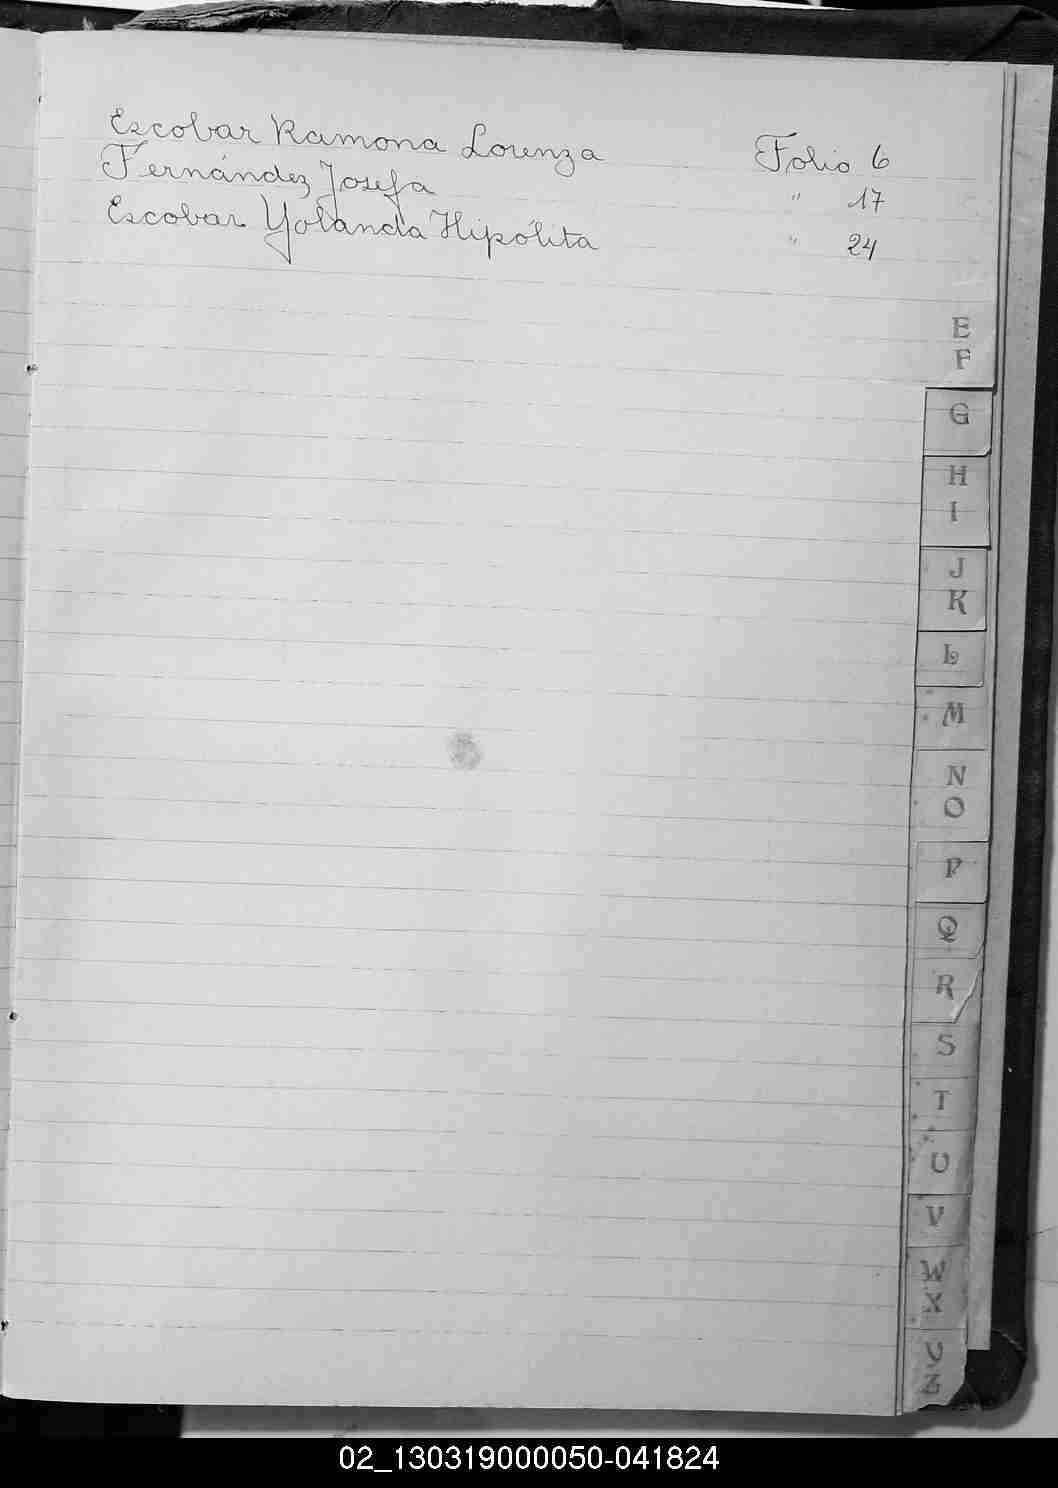 Escobar Ramona Lorenza Folio 6
Fernández Josefa " 17
Escobar Yolanda Hipólita " 24
E
F
G
H
I
J
K
L
M
N
O
P
Q
R
S
T
U
V
W
X
Y
Z
02_130319000050-041824